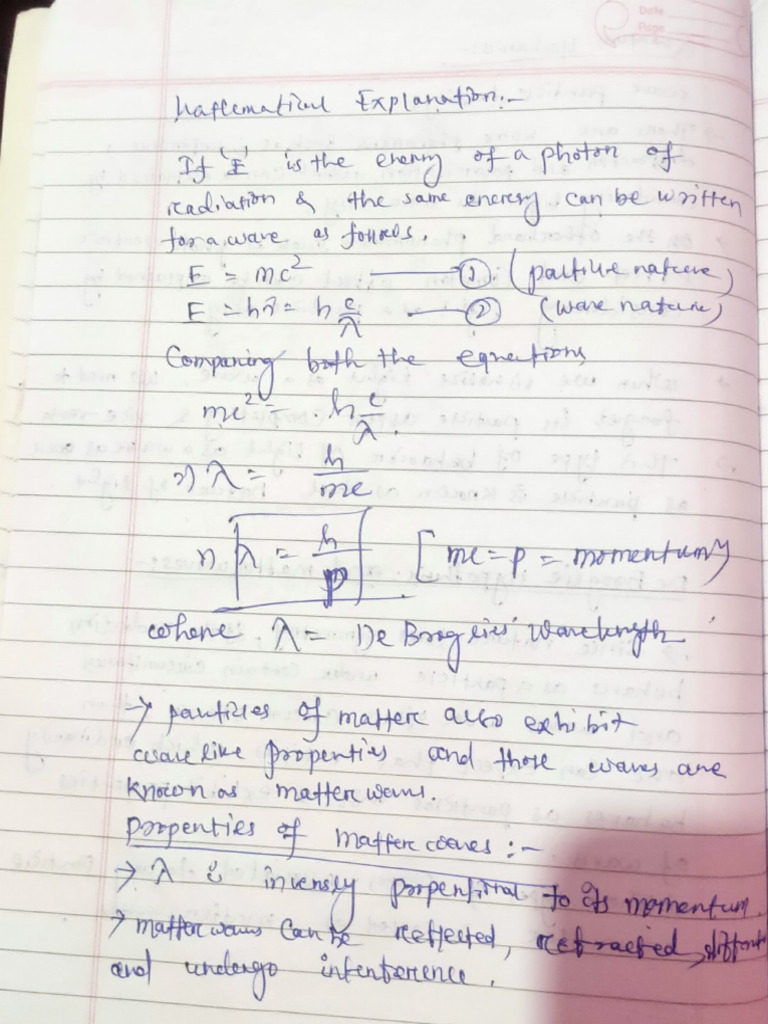 Date
Page
Mathematical Explanation:-
If 'E' is the energy of a photon of
radiation & the same energy can be written
for a wave as follows.
E = mc² ——— ① (particle nature)
E = hν = h c/λ ——— ② (wave nature)
Comparing both the equations
mc² = h c/λ.
⇒ λ = h/mc
⇒ λ = h/p [mc = p = momentum]
where λ = De Broglies' wavelength
→ particles of matter also exhibit
wave like properties and those waves are
known as matter waves.
properties of matter waves :-
→ λ is inversly propertional to its momentum.
→ matter waves can be reflected, refracted,
and undergo interference.